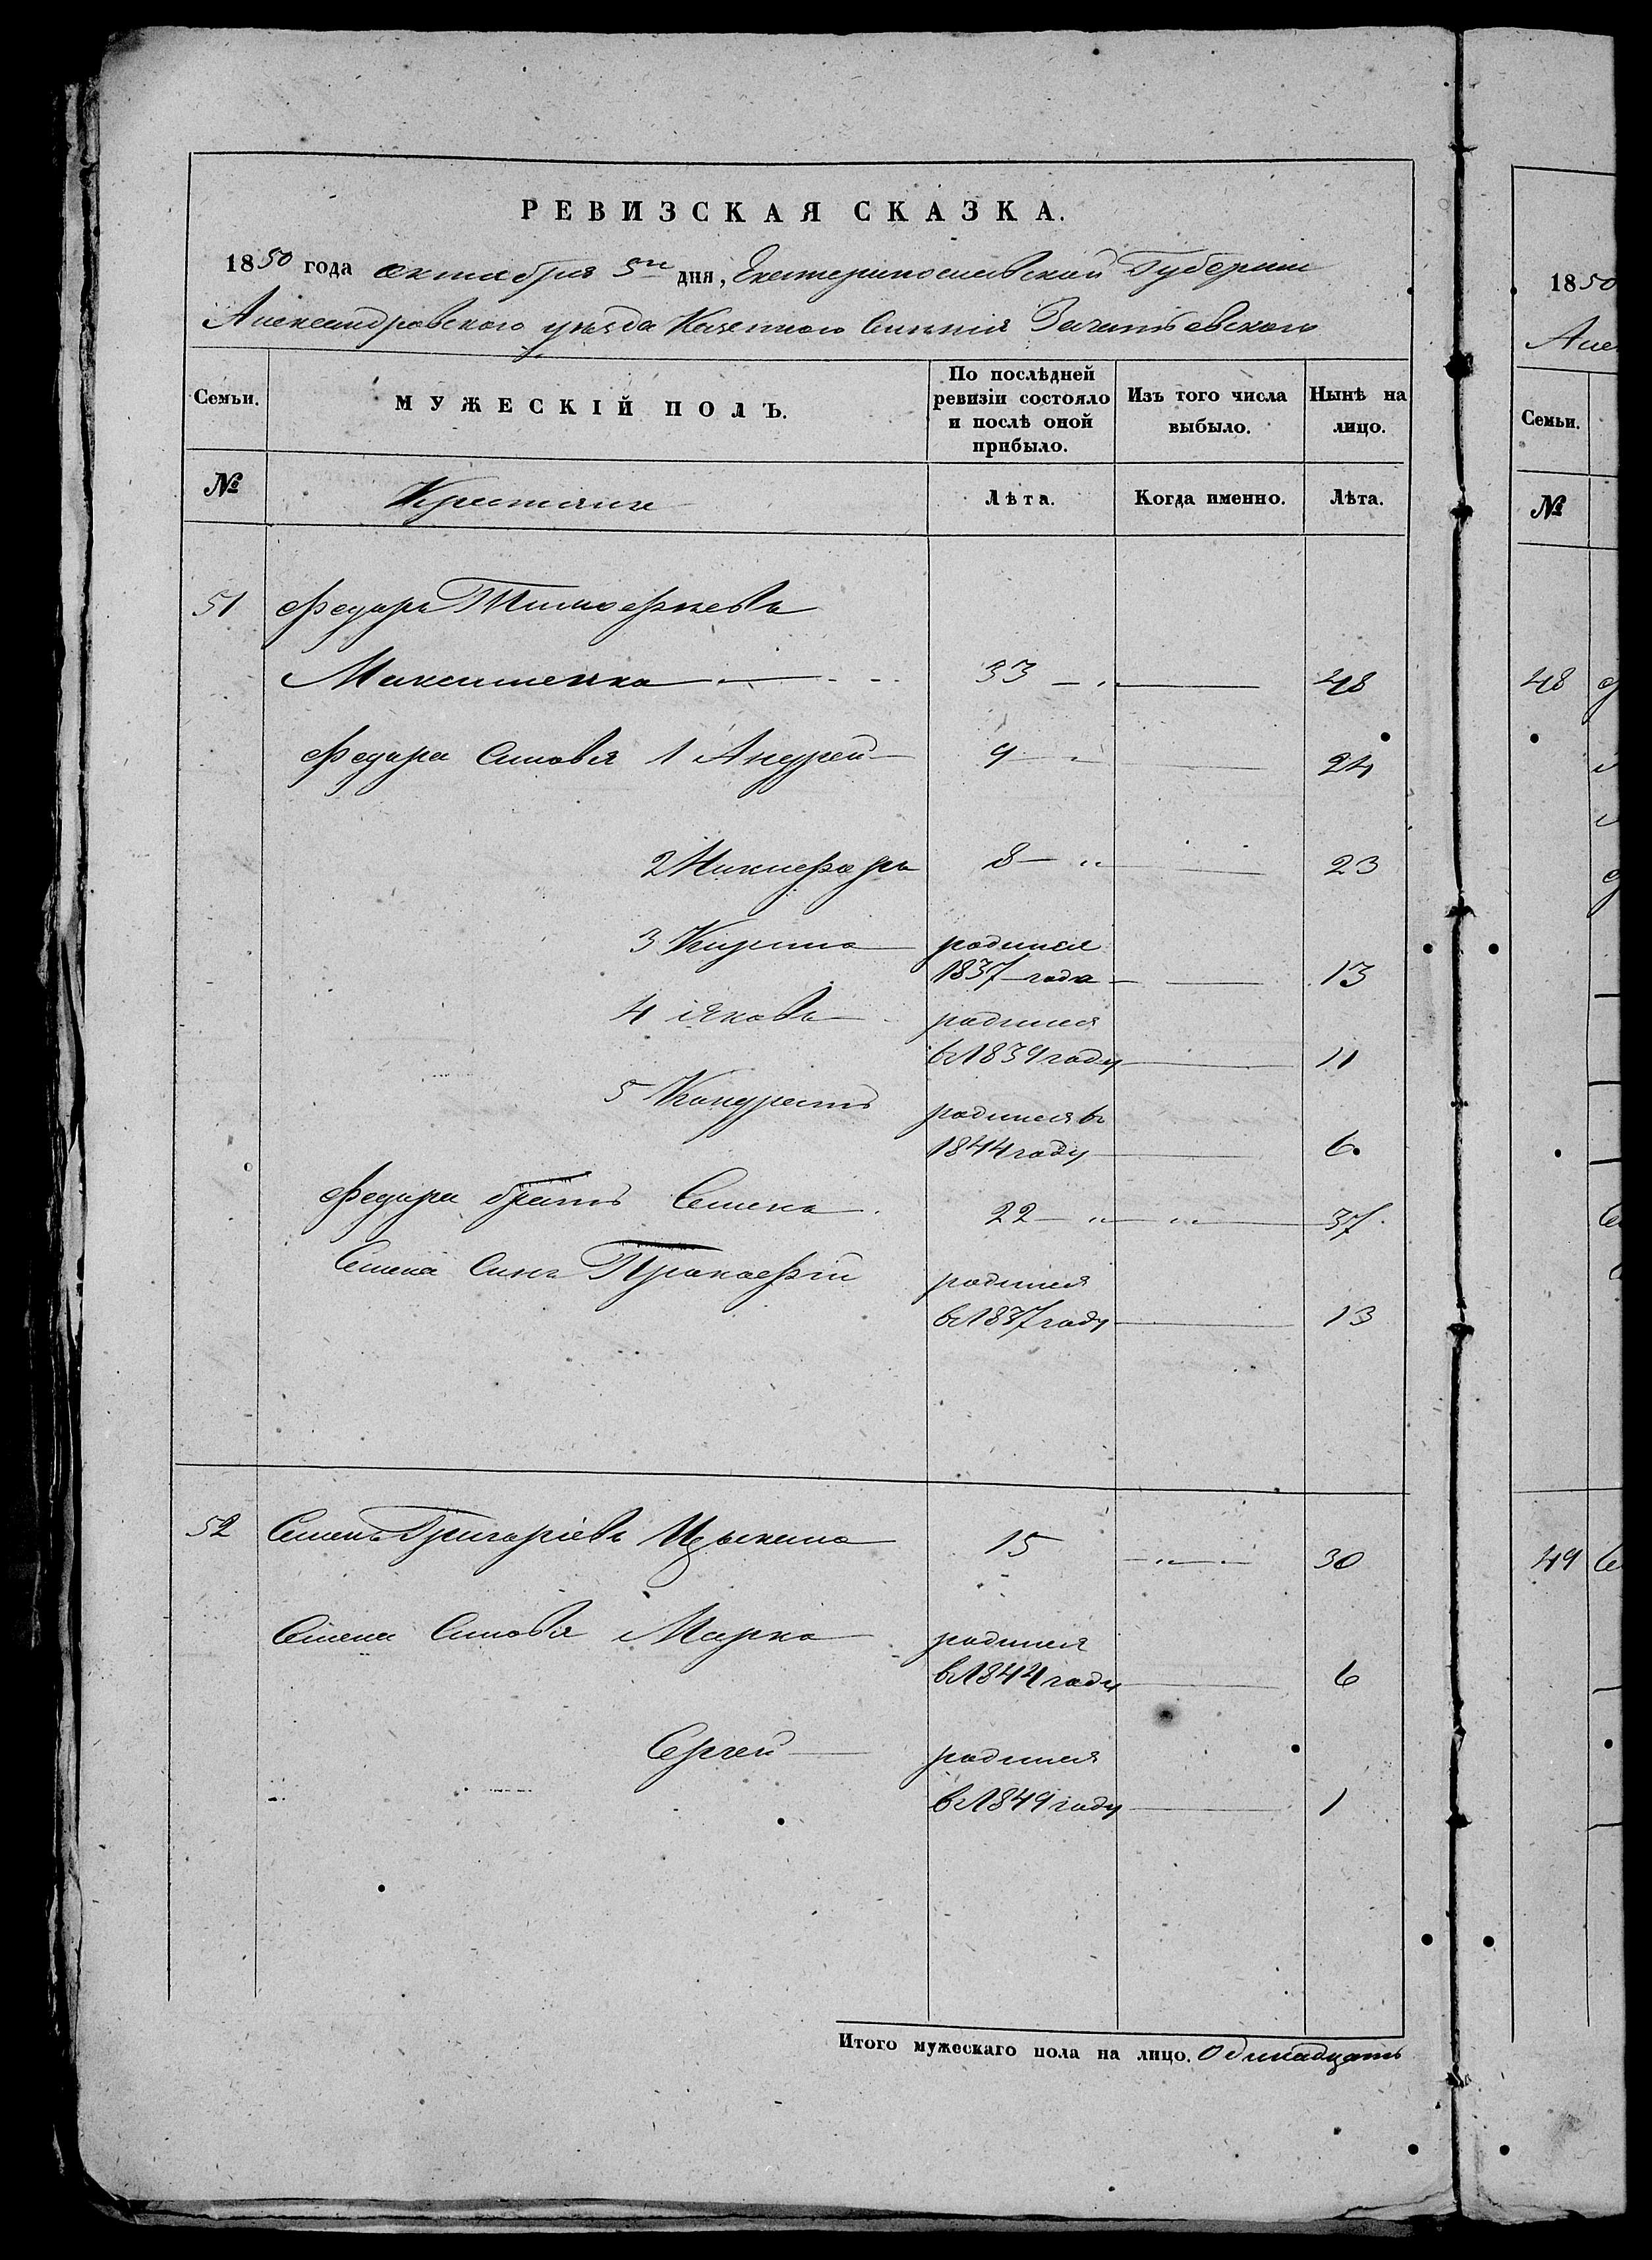 РЕВИЗСКАЯ СКАЗКА.
1850 года октября 5го дня, Екатеринославской Губернии
Александровского уѣзда Казенного Сѣлѣнія Зачатѣевского
Семьи. МУЖЕСКІЙ ПОЛЪ. По послѣдней ревизіи состояло и послѣ оной прибыло. Изъ того числа выбыло. Нынѣ на лицо.
№ Крестяне Лѣта. Когда именно. Лѣта.
51 Федоръ Тимофѣевъ
Максименко 33 48
Федора Синовья 1 Андрей 9 24
2 Никифоръ 8 23
3 Кирило родился
1837 года 13
4 Яковъ родился
въ 1839 году 11
5 Кондратъ родился въ
1844 году 6
Федора братъ Семенъ 22 37
Семена Синъ Прокофій родился
въ 1837 году 13
52 Семенъ Григоріевъ 15 30
Семена Синовья Марко родился
въ 1844 году 6
Сергей родился
въ 1849 году 1
Итого мужескаго пола на лицо. Одинадцать
1850
Але
Семьи.
№
48
49 Се